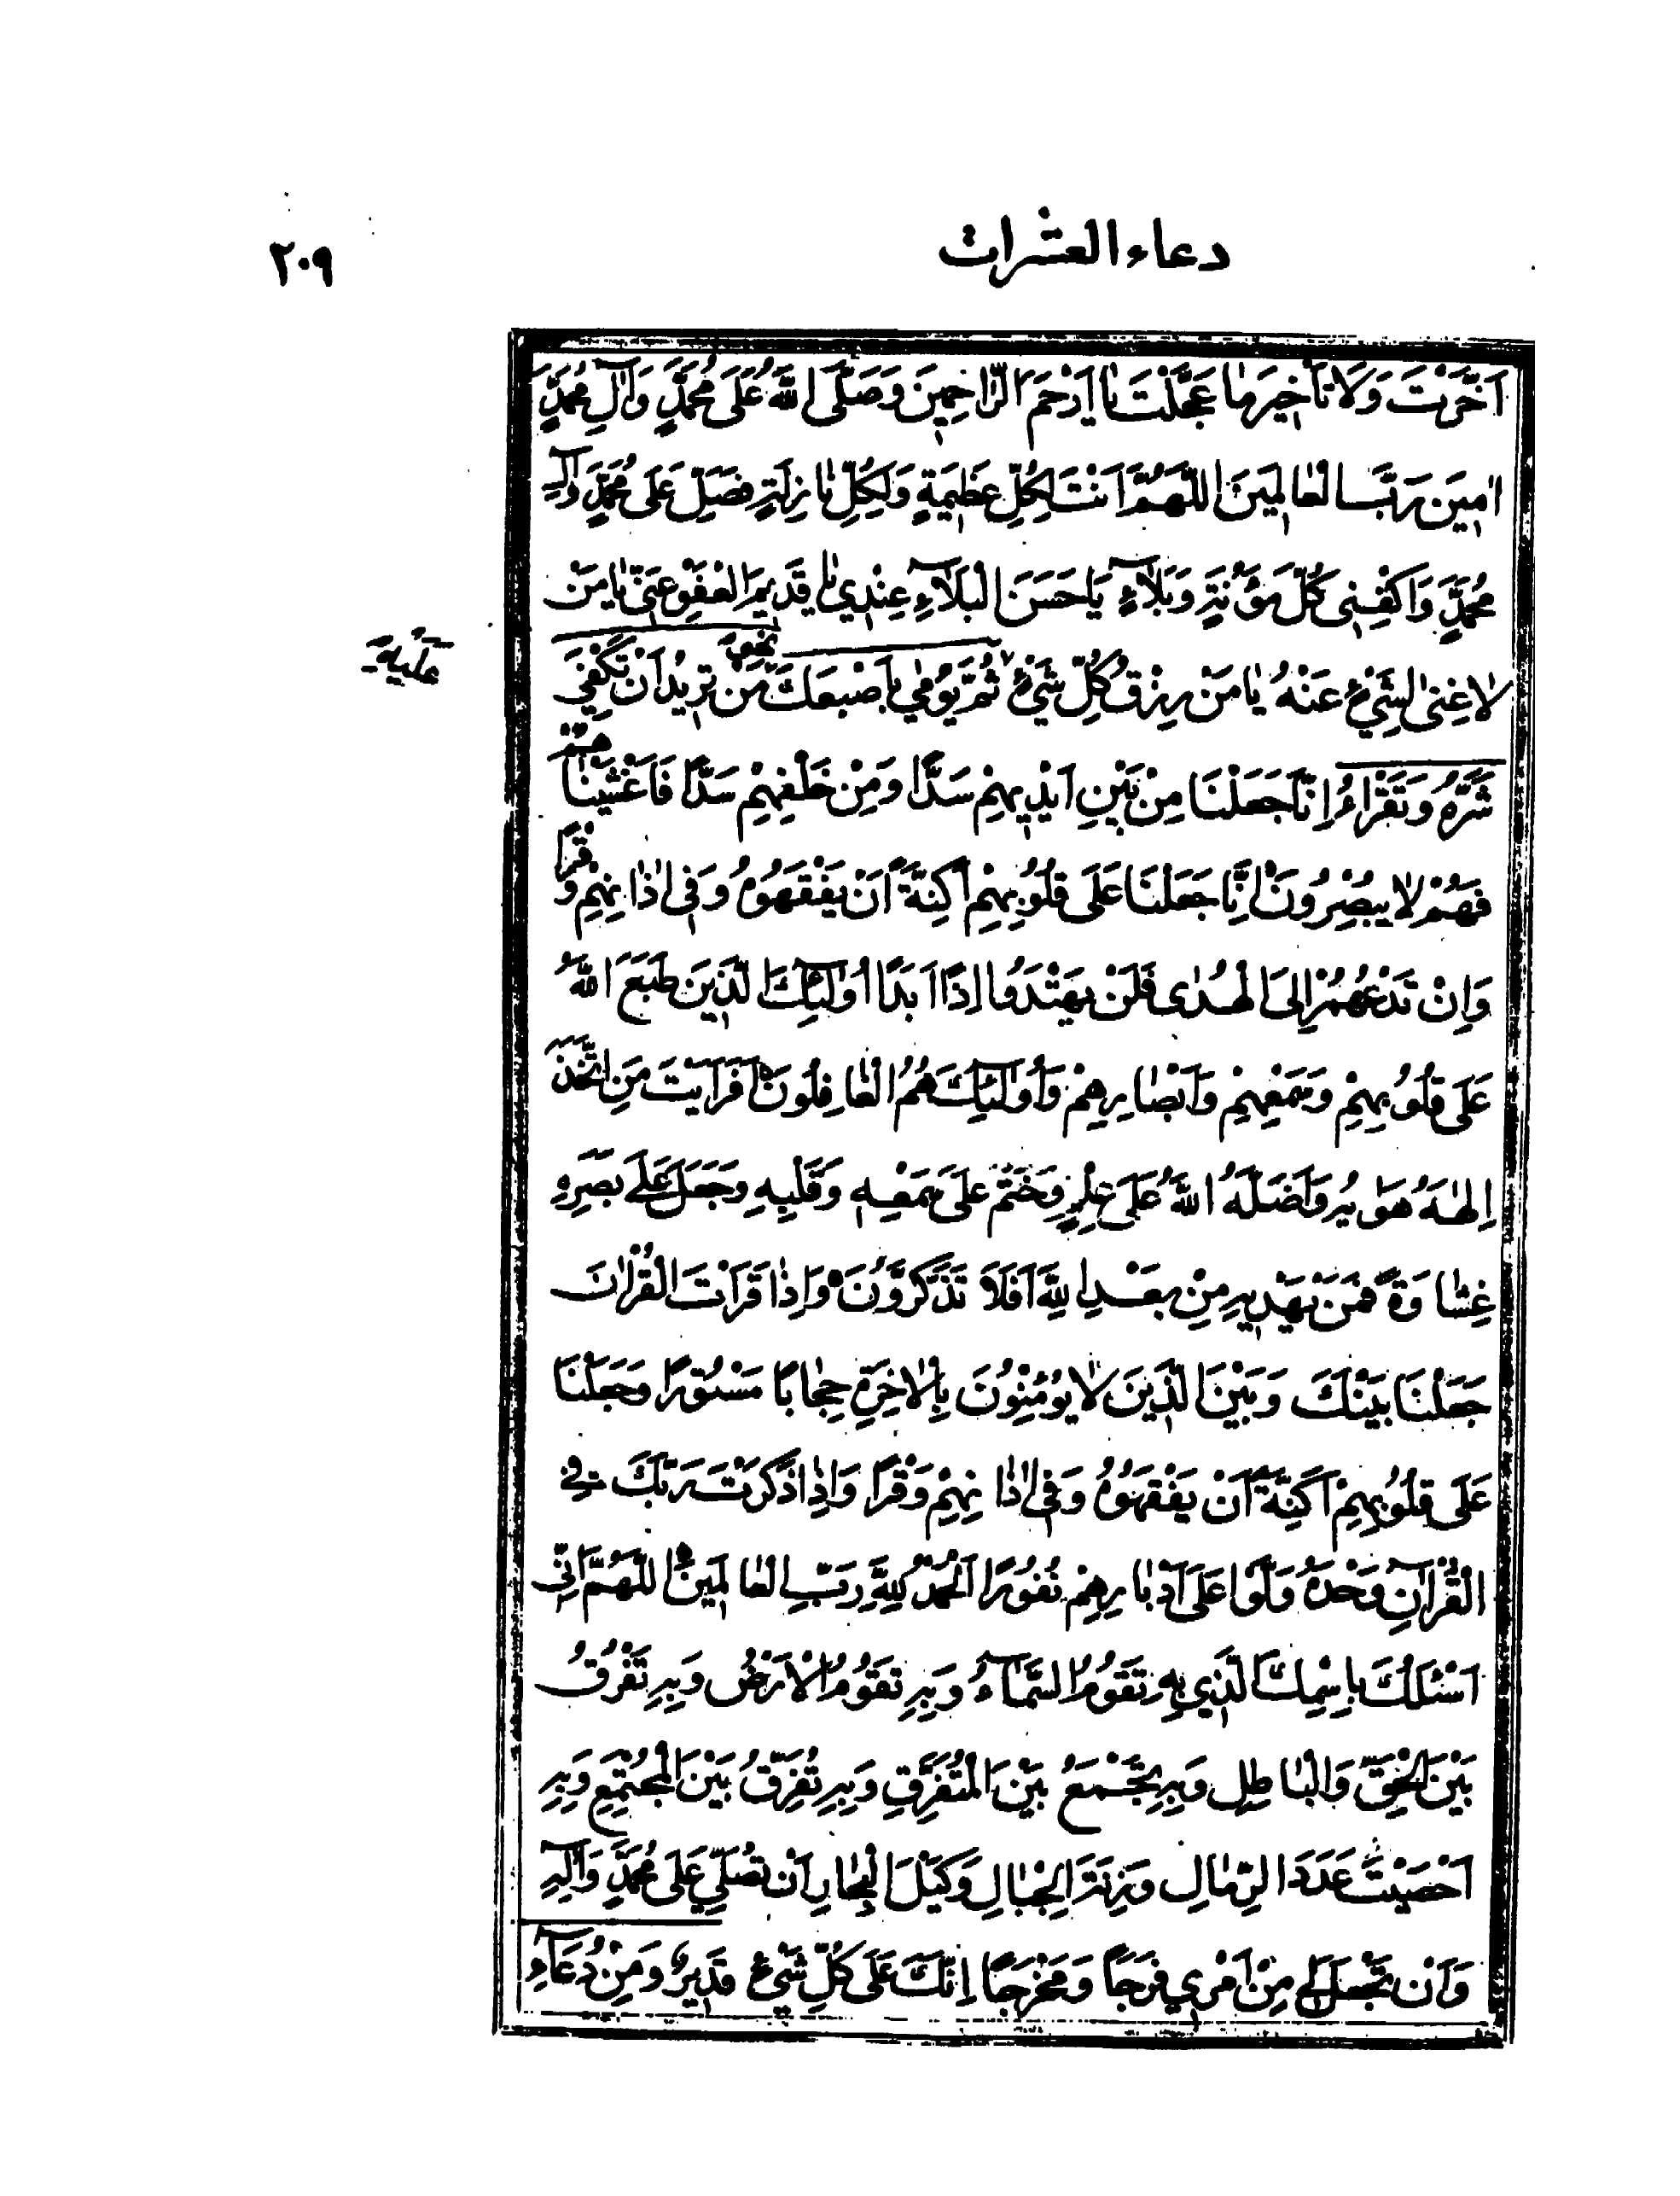 دعاء العشرات
٢٠٩
اَخَّرْتَ وَلَا تَأْخِيرَ مٰا عَجَّلْتَ يٰا اَرْحَمَ الرّٰاحِمِينَ وَصَلَّى اللّٰهُ عَلَى مُحَمَّدٍ وَاٰلِ مُحَمَّدٍ
اٰمِينَ رَبَّ الْعٰالَمِينَ اَللّٰهُمَّ اَنْتَ لِكُلِّ عَظِيمَةٍ وَلِكُلِّ نٰازِلَةٍ فَصَلِّ عَلَى مُحَمَّدٍ وَاٰلِ
مُحَمَّدٍ وَاكْفِنِي كُلَّ مَؤُنَةٍ وَبَلَاۤءٍ يَا حَسَنَ الْبَلَاۤءِ عِنْدِي يٰا قَدِيمَ الْعَفْوِ عَنِّي يٰا مَنْ
لٰا غِنىٰ لِشَيْءٍ عَنْهُ يٰا مَنْ رِزْقُ كُلِّ شَيْءٍ ثُمَّ يُؤْمِي بِاِصْبَعِكَ نَحْوَ مَنْ تُرِيدُ اَنْ تُكْفَى
عَلَيْهِ
شَرَّهُ وَتَقْرَاءُ اِنَّا جَعَلْنَا مِنْ بَيْنِ اَيْدِيهِمْ سَدًّا وَمِنْ خَلْفِهِمْ سَدًّا فَاَغْشَيْنٰاهُمْ
فَهُمْ لٰا يُبْصِرُونَ اِنَّا جَعَلْنَا عَلَى قُلُوبِهِمْ اَكِنَّةً اَنْ يَفْقَهُوهُ وَفِي اٰذٰانِهِمْ وَقْرًا
وَاِنْ تَدْعُهُمْ اِلَى الْهُدٰى فَلَنْ يَهْتَدُوا اِذًا اَبَدًا اُولٰۤئِكَ الَّذِينَ طَبَعَ اللّٰهُ
عَلَى قُلُوبِهِمْ وَسَمْعِهِمْ وَاَبْصٰارِهِمْ وَاُولٰۤئِكَ هُمُ الْغٰافِلُونَ اَفَرَاَيْتَ مَنِ اتَّخَذَ
اِلٰهَهُ هَوٰيهُ وَاَضَلَّهُ اللّٰهُ عَلَى عِلْمٍ وَخَتَمَ عَلَى سَمْعِهِ وَقَلْبِهِ وَجَعَلَ عَلَى بَصَرِهِ
غِشٰاوَةً فَمَنْ يَهْدِيهِ مِنْ بَعْدِ اللّٰهِ اَفَلَا تَذَكَّرُونَ وَاِذٰا قَرَاْتَ الْقُرْاٰنَ
جَعَلْنَا بَيْنَكَ وَبَيْنَ الَّذِينَ لٰا يُؤْمِنُونَ بِالْاٰخِرَةِ حِجٰابًا مَسْتُورًا وَجَعَلْنَا
عَلَى قُلُوبِهِمْ اَكِنَّةً اَنْ يَفْقَهُوهُ وَفِي اٰذٰانِهِمْ وَقْرًا وَاِذٰا ذَكَرْتَ رَبَّكَ فِي
الْقُرْاٰنِ وَحْدَهُ وَلَّوْا عَلَى اَدْبٰارِهِمْ نُفُورًا اَلْحَمْدُ لِلّٰهِ رَبِّ الْعٰالَمِينَ اَللّٰهُمَّ اِنِّي
اَسْئَلُكَ بِاسْمِكَ الَّذِي بِهِ تَقُومُ السَّمَاۤءُ وَبِهِ تَقُومُ الْاَرْضُ وَبِهِ تَفْرُقُ
بَيْنَ الْحَقِّ وَالْبٰاطِلِ وَبِهِ تَجْمَعُ بَيْنَ الْمُتَفَرِّقِ وَبِهِ تُفَرِّقُ بَيْنَ الْمُجْتَمِعِ وَبِهِ
اَحْصَيْتَ عَدَدَ الرِّمٰالِ وَزِنَةَ الْجِبٰالِ وَكَيْلَ الْبِحٰارِ اَنْ تُصَلِّيَ عَلَى مُحَمَّدٍ وَاٰلِهِ
وَاَنْ تَجْعَلَ لِي مِنْ اَمْرِي فَرَجًا وَمَخْرَجًا اِنَّكَ عَلَى كُلِّ شَيْءٍ قَدِيرٌ وَمِنْ دُعَاۤءِ